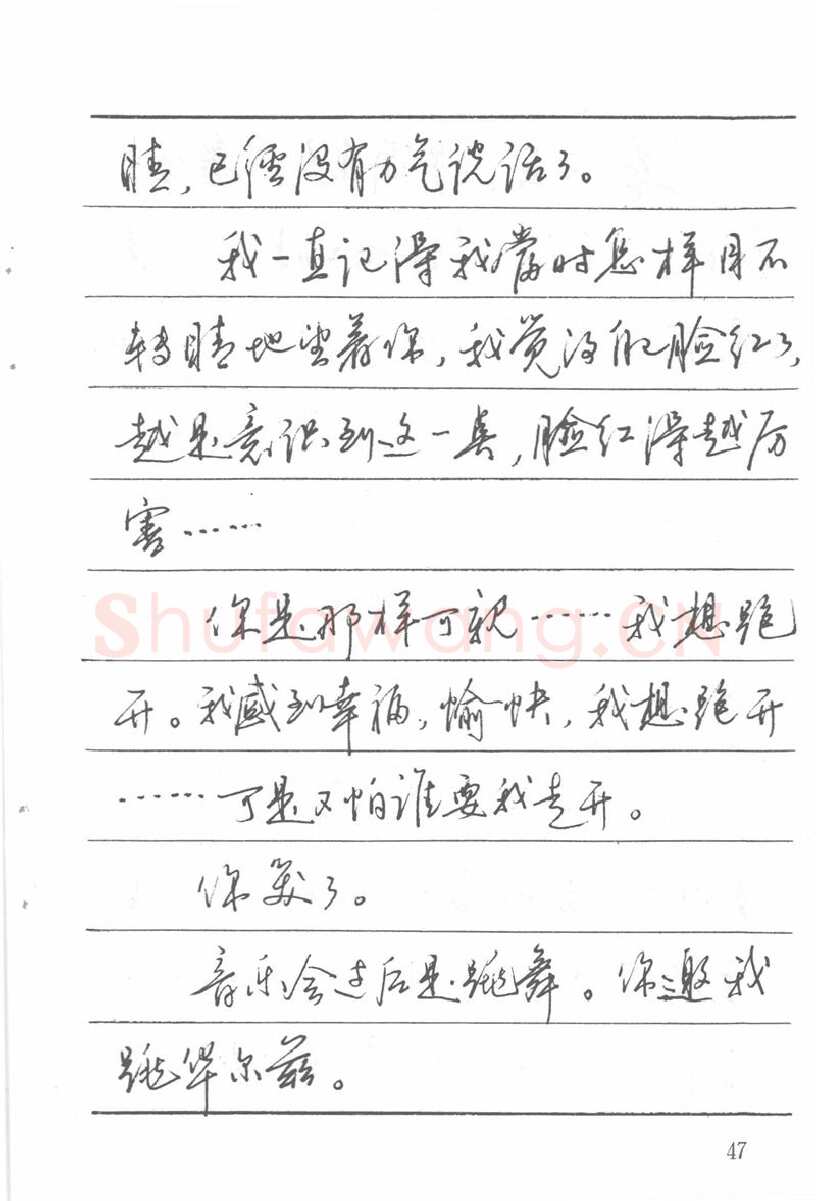 睛，已经没有力气说话了。
我一直记得我当时怎样目不
转睛地望着你，我觉得脸红了，
越是意识到这一点，脸红得越厉
害……
你是那样可亲……我想跑
开。我感到幸福，愉快，我想跑开
……可是又怕谁要我走开。
你笑了。
音乐会过后是跳舞。你邀我
跳华尔兹。
Shufawang.CN
47